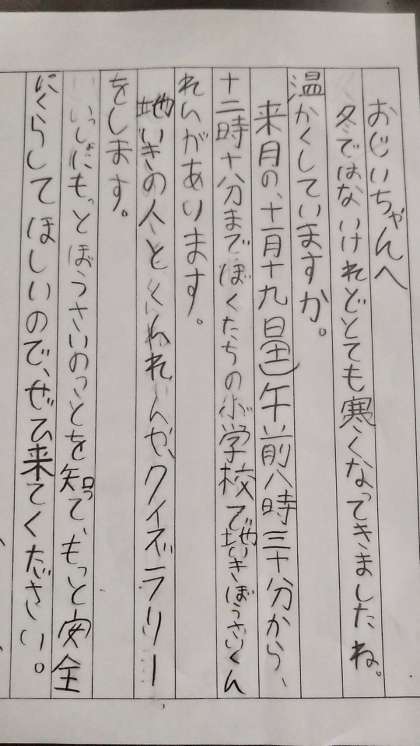 おじいちゃんへ
冬ではないけれどとても寒くなってきましたね。
温かくしていますか。
来月の、十一月十九日(土)午前八時三十分から、
十二時十分までぼくたちの小学校で地いきぼうさいくん
れんがあります。
地いきの人とくんれんや、クイズラリー
をします。
いっしょにもっとぼうさいのことを知って、もっと安全
にくらしてほしいので、ぜひ来てください。